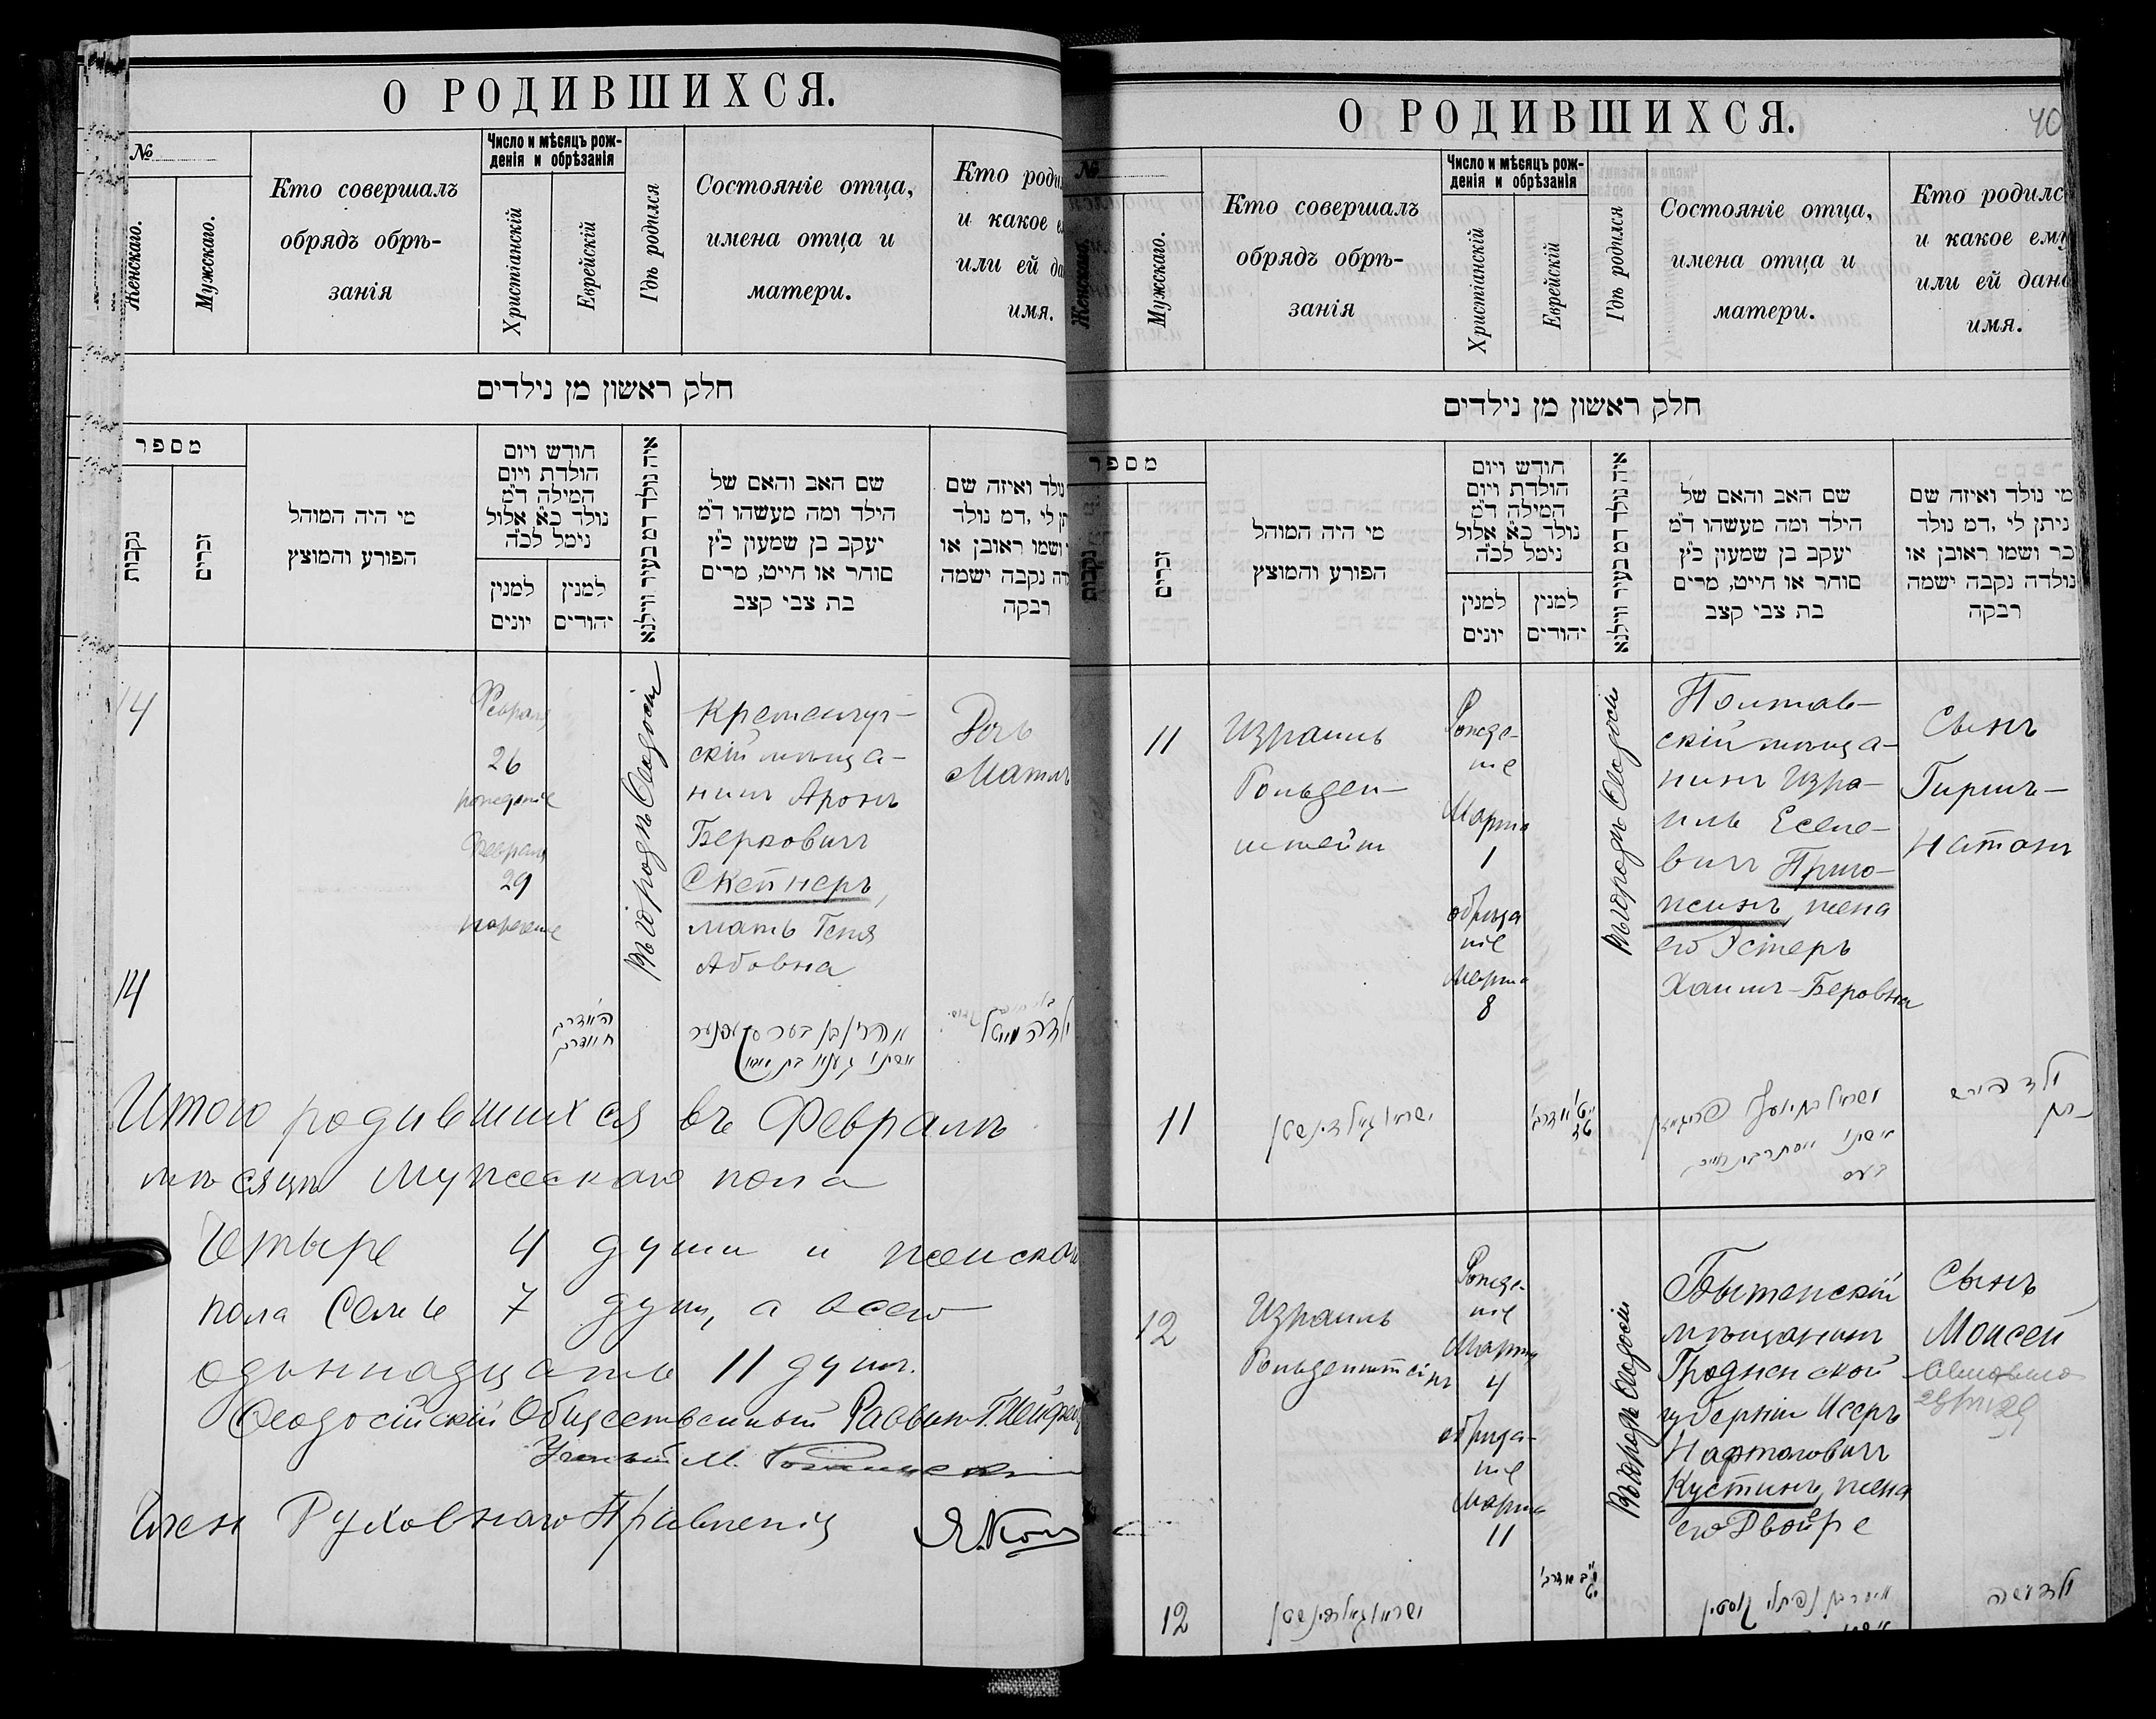 О РОДИВШИХСЯ.
№
Женскаго.
Мужскаго.
Кто совершалъ
обрядъ обрѣ-
занія
Число и мѣсяцъ рож-
денія и обрѣзанія
Христіанскій
Еврейскій
Гдѣ родился
Состояніе отца,
имена отца и
матери.
Кто роди
и какое е
или ей да
имя.
חלק ראשון מן נילדים
מספר
נקבות
זכרים
מי היה המוהל
הפורע והמוצץ
חודש ויום
הולדת ויום
המילה ד״מ
נולד כ״א אלול
נימל לכ״ה
למנין
יונים
למנין
יהודים
איה נולד דמ בעיר ווילנא
שם האב והאם של
הילד ומה מעשהו ד״מ
יעקב בן שמעון כ״ץ
סוחר או חייט, מרים
בת צבי קצב
נולד ואיזה שם
תן לי, דמ נולד
ושמו ראובן או
דה נקבה ישמה
רבקה
14
Февраля
26
рожденіе
Февраля
29
нареченіе
Въ городѣ Ѳеодосіи
Кременчуг-
скій мѣща-
нинъ Аронъ
Берковичъ
Скепнеръ,
мать Геня
Абовна
Дочь
14
Итого родившихся въ Февралѣ
мѣсяцѣ мужескаго пола
четыре 4 души и женскаго
пола семь 7 душъ, а всего
одиннадцать 11 душъ.
Ѳеодосійскій Общественный Раввинъ
Ученый М.
Членъ Духовнаго Правленія
О РОДИВШИХСЯ.
40
№
Женскаго.
Мужскаго.
Кто совершалъ
обрядъ обрѣ-
занія
Число и мѣсяцъ рож-
денія и обрѣзанія
Христіанскій
Еврейскій
Гдѣ родился
Состояніе отца,
имена отца и
матери.
Кто родилс
и какое ему
или ей дано
имя.
חלק ראשון מן נילדים
מספר
נקבות
זכרים
מי היה המוהל
הפורע והמוצץ
חודש ויום
הולדת ויום
המילה ד״מ
נולד כ״א אלול
נימל לכ״ה
למנין
יונים
למנין
יהודים
איה נולד דמ בעיר ווילנא
שם האב והאם של
הילד ומה מעשהו ד״מ
יעקב בן שמעון כ״ץ
סוחר או חייט, מרים
בת צבי קצב
מי נולד ואיזה שם
ניתן לי, דמ נולד
כר ושמו ראובן או
נולדה נקבה ישמה
רבקה
11
Израиль
Гольден-
штейн
Рожде-
ніе
Марта
1
обрѣза
ніе
Марта
8
Въ городѣ Ѳеодосіи
Полтав-
скій мѣща-
нинъ Изра-
иль Еселе-
вичъ Приго-
жинъ, жена
его Эстеръ
Хаимъ-Беровна
Сынъ
Гиршъ-
Натанъ
11
12
Израиль
Гольденштейнъ
Рожде-
ніе
Марта
4
обрѣза-
ніе
Марта
11
Въ городѣ Ѳеодосіи
Бытенскій
мѣщанинъ
Гродненской
губерніи Исеръ
Нафтоловичъ
Кустинъ, жена
его Двойре
Сынъ
Моисей
12